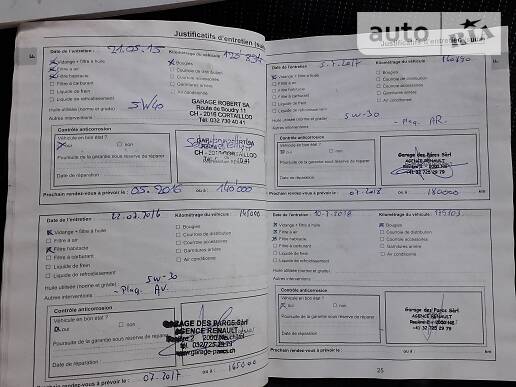 auto RIA
Justificatifs d'entretien (suite)
Date de l'entretien : 21.05.15 Kilométrage du véhicule :
Vidange + filtre à huile
Filtre à air
Filtre habitacle
Filtre à carburant
Liquide de frein
Liquide de refroidissement
Bougies
Courroie de distribution
Courroie accessoires
Garnitures arrière
Air conditionné
Huile utilisée (norme et grade) : 5W40
Autres interventions :
GARAGE ROBERT SA
Route de Boudry 11
CH - 2016 CORTAILLOD
Tél. 032 730 40 41
Contrôle anticorrosion
Véhicule en bon état ?
oui non
Poursuite de la garantie sous réserve de réparer :
Date de réparation :
Prochain rendez-vous à prévoir le : 05.2016 ou à : 140000
Date de l'entretien : 22.07.2016 Kilométrage du véhicule : 145000
Vidange + filtre à huile
Filtre à air
Filtre habitacle
Filtre à carburant
Liquide de frein
Liquide de refroidissement
Bougies
Courroie de distribution
Courroie accessoires
Garnitures arrière
Air conditionné
Huile utilisée (norme et grade) : 5W-30
Autres interventions : - Plaq. AV.
Contrôle anticorrosion
Véhicule en bon état ?
oui non
Poursuite de la garantie sous réserve de réparer :
Date de réparation :
GARAGE DES PARCS Sàrl
AGENCE RENAULT
2000 Neuchâtel
Tél. 032/725 29 79
www.garage-parcs.ch
Prochain rendez-vous à prévoir le : 07.2017 ou à : 165000
Justificatifs d'entretien (suite)
Date de l'entretien : 5.7.2017 Kilométrage du véhicule :
Vidange + filtre à huile
Filtre à air
Filtre habitacle
Filtre à carburant
Liquide de frein
Liquide de refroidissement
Bougies
Courroie de distribution
Courroie accessoires
Garnitures arrière
Air conditionné
Huile utilisée (norme et grade) : 5W-30
Autres interventions : - Plaq. AR.
Contrôle anticorrosion
Véhicule en bon état ?
oui non
Poursuite de la garantie sous réserve de réparer :
Date de réparation :
Garage des Parcs Sàrl
AGENCE RENAULT
2000 NE
+41 32 725 29 79
Prochain rendez-vous à prévoir le : 07.2018 ou à : 180000 km
Date de l'entretien : 10.7.2018 Kilométrage du véhicule :
Vidange + filtre à huile
Filtre à air
Filtre habitacle
Filtre à carburant
Liquide de frein
Liquide de refroidissement
Bougies
Courroie de distribution
Courroie accessoires
Garnitures arrière
Air conditionné
Huile utilisée (norme et grade) :
Autres interventions :
Contrôle anticorrosion
Véhicule en bon état ?
oui non
Poursuite de la garantie sous réserve de réparer :
Date de réparation :
Garage des Parcs Sàrl
AGENCE RENAULT
2000 NE
+41 32 725 29 79
Prochain rendez-vous à prévoir le : ou à : km
25